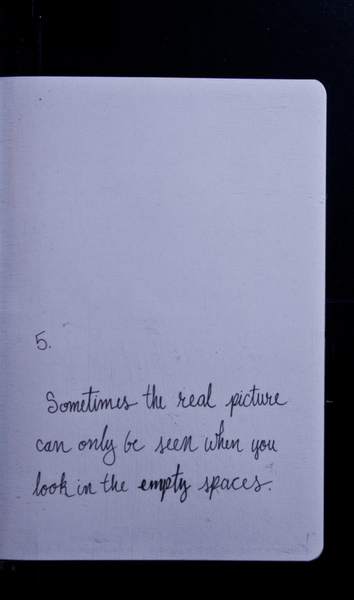 5.
Sometimes the real picture
can only be seen when you
look in the empty spaces.